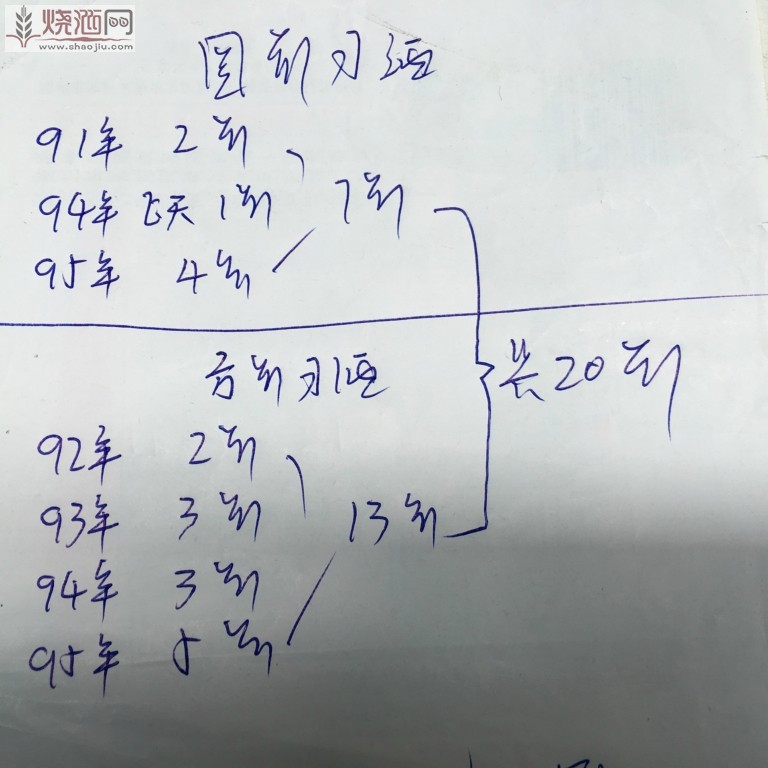 烧酒网
www.shaojiu.com
圆瓶习酒
91年 2瓶
94年 飞天 1瓶 7瓶
95年 4瓶
方瓶习酒 共20瓶
92年 2瓶
93年 3瓶 13瓶
94年 3瓶
95年 5瓶